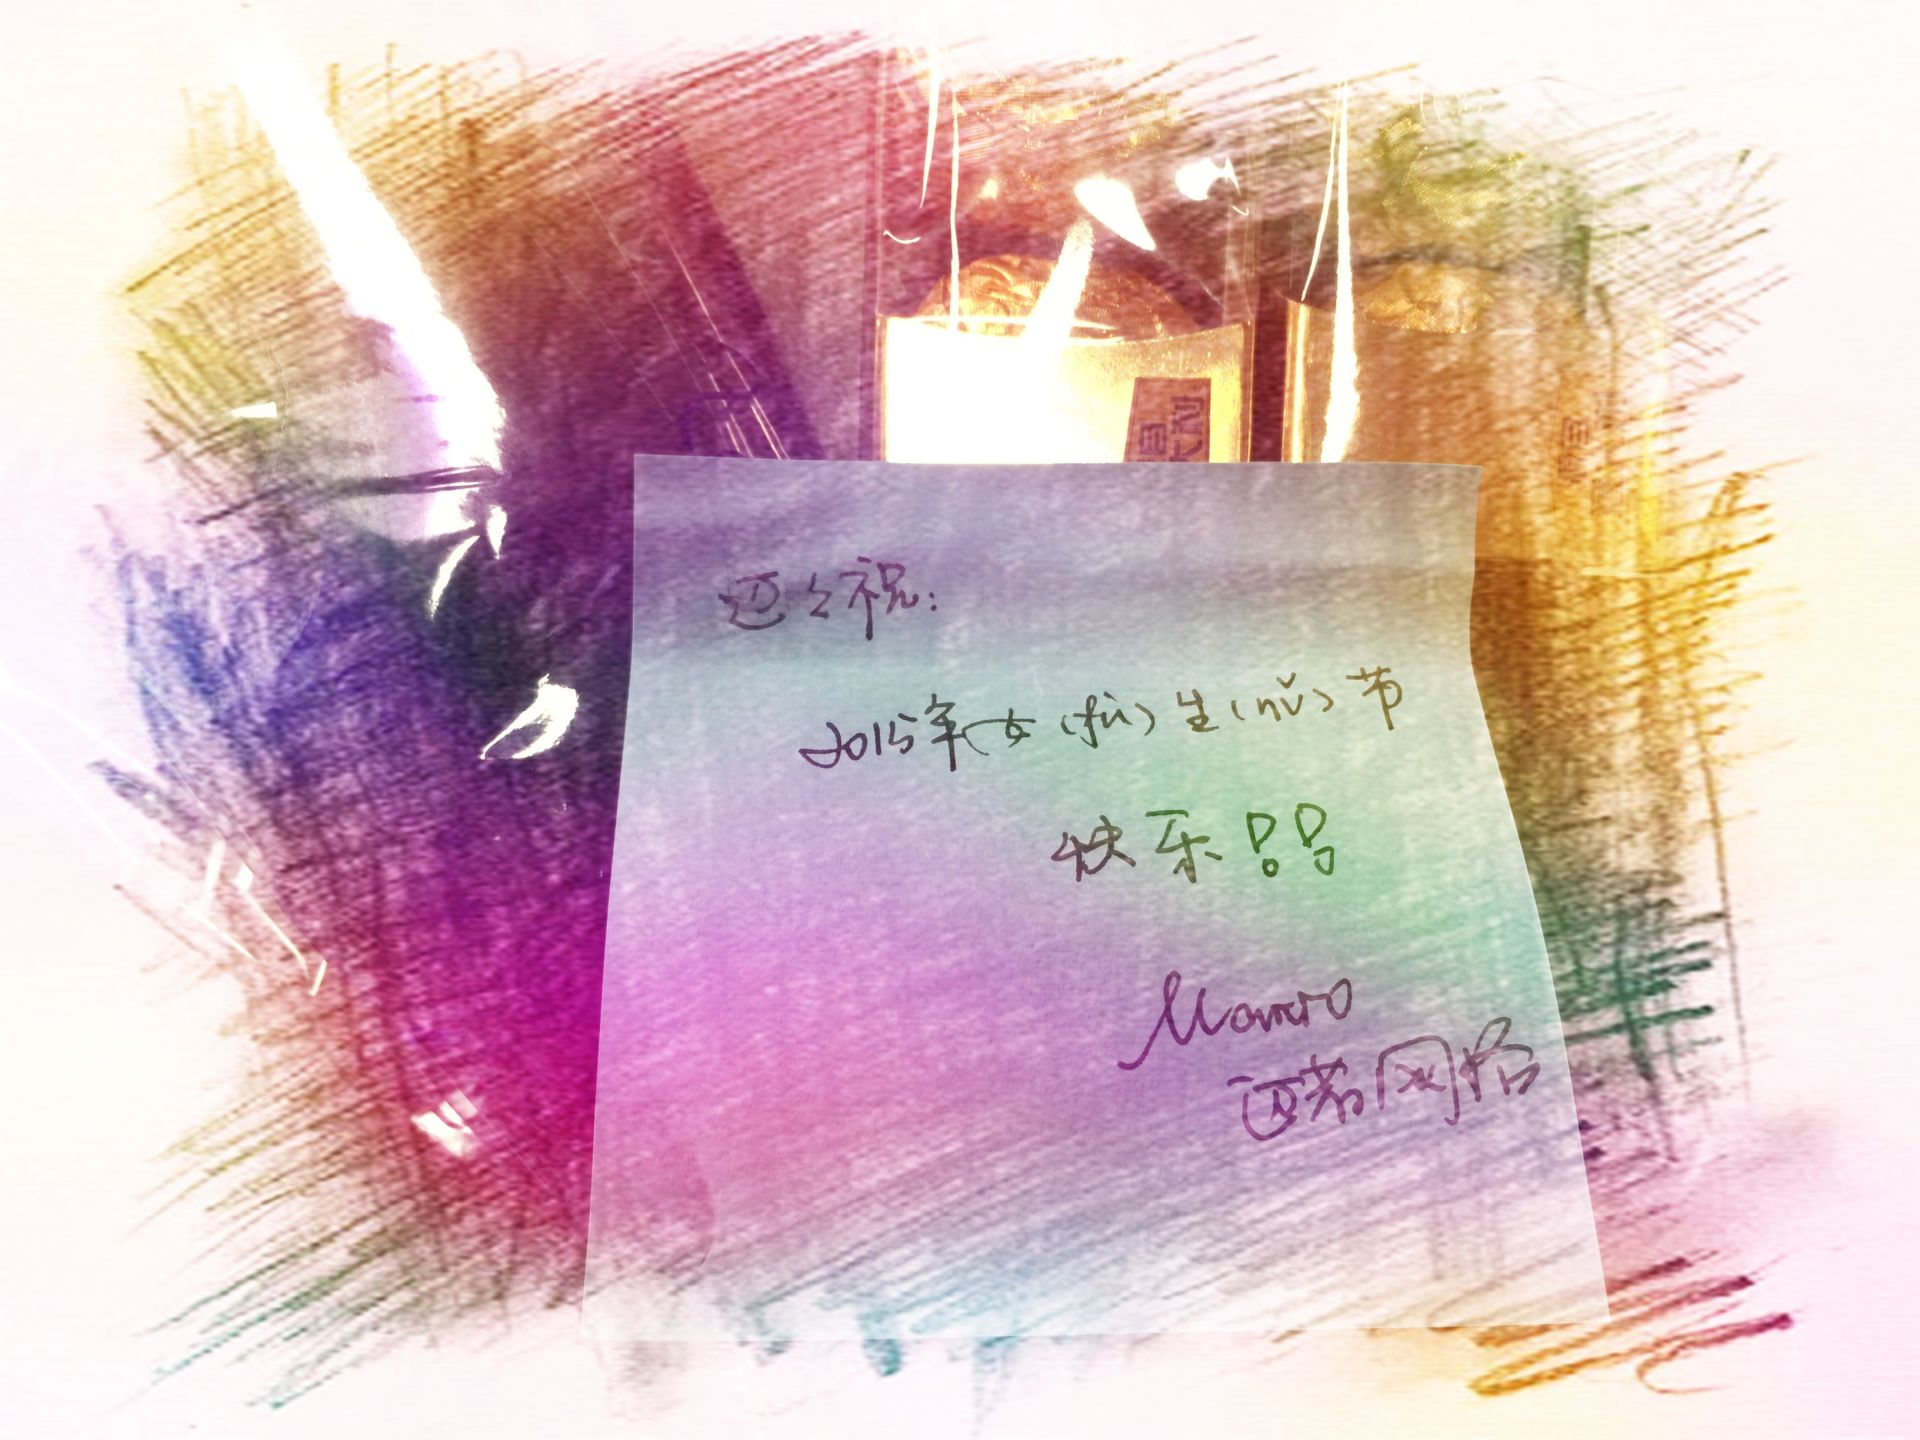 迈々祝：
2015年女（fù）生（nǚ）节
快乐！！
迈若网络